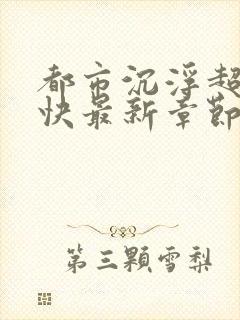 都市沉浮超
快最新章節
第三顆雪梨